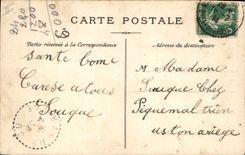 CARTE POSTALE
Partie réservée à la Correspondance
Adresse du destinataire
Sante Come
Carese a tous
Souque
M. Madame
Souque Chez
Piquemal trien
uston ariège